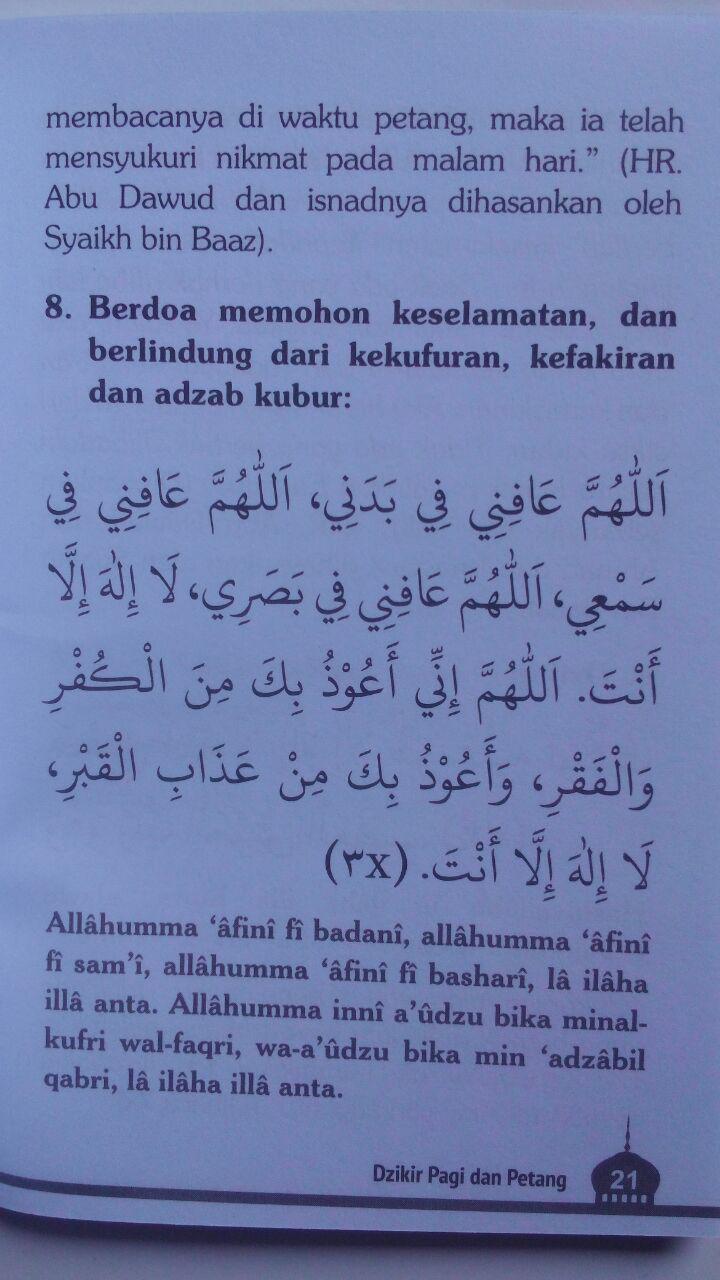 membacanya di waktu petang, maka ia telah
mensyukuri nikmat pada malam hari.” (HR.
Abu Dawud dan isnadnya dihasankan oleh
Syaikh bin Baaz).
8. Berdoa memohon keselamatan, dan
berlindung dari kekufuran, kefakiran
dan adzab kubur:
اَللّٰهُمَّ عَافِنِي فِي بَدَنِي، اَللّٰهُمَّ عَافِنِي فِي
سَمْعِي، اَللّٰهُمَّ عَافِنِي فِي بَصَرِي، لَا إِلٰهَ إِلَّا
أَنْتَ. اَللّٰهُمَّ إِنِّي أَعُوْذُ بِكَ مِنَ الْكُفْرِ
وَالْفَقْرِ، وَأَعُوْذُ بِكَ مِنْ عَذَابِ الْقَبْرِ،
لَا إِلٰهَ إِلَّا أَنْتَ. (٣X)
Allâhumma ‘âfinî fî badanî, allâhumma ‘âfinî
fî sam’î, allâhumma ‘âfinî fî basharî, lâ ilâha
illâ anta. Allâhumma innî a’ûdzu bika minal-
kufri wal-faqri, wa-a’ûdzu bika min ‘adzâbil
qabri, lâ ilâha illâ anta.
Dzikir Pagi dan Petang 21